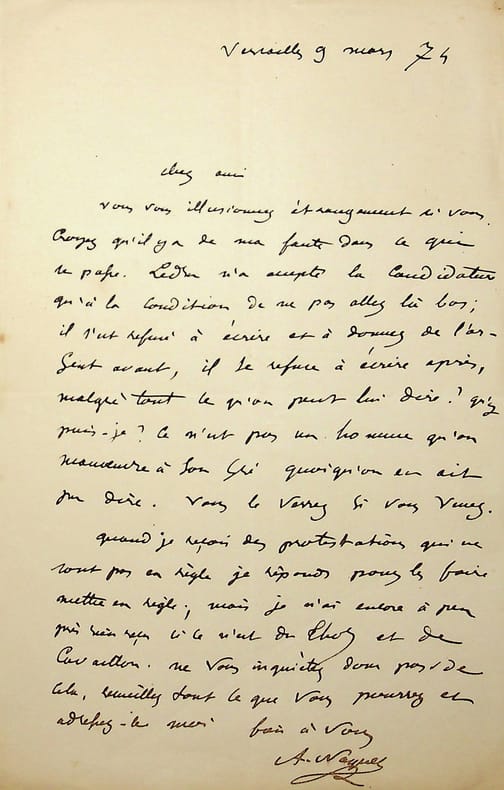 Versailles 9 mars 74
cher ami
vous vous illusionnez étrangement si vous
croyez qu'il y a de ma faute dans ce qui
se passe. Ledru n'a accepté la candidature
qu'à la condition de ne pas aller là bas;
il s'est refusé à écrire et à donner de l'ar-
gent avant, il se refuse à écrire après,
malgré tout ce qu'on peut lui dire? qu'y
puis-je? Ce n'est pas un homme qu'on
manœuvre à son gré quoiqu'on en ait
pu dire. Vous le verrez si vous venez.
quand je reçois des protestations qui ne
sont pas en règle je réponds pour les faire
mettre en règle; mais je n'ai encore à peu
près rien reçu si ce n'est du Thor et de
Cavaillon. ne vous inquiétez donc pas de
cela, recueillez tout ce que vous pourrez et
adressez-le moi bien à vous
A. Naquet